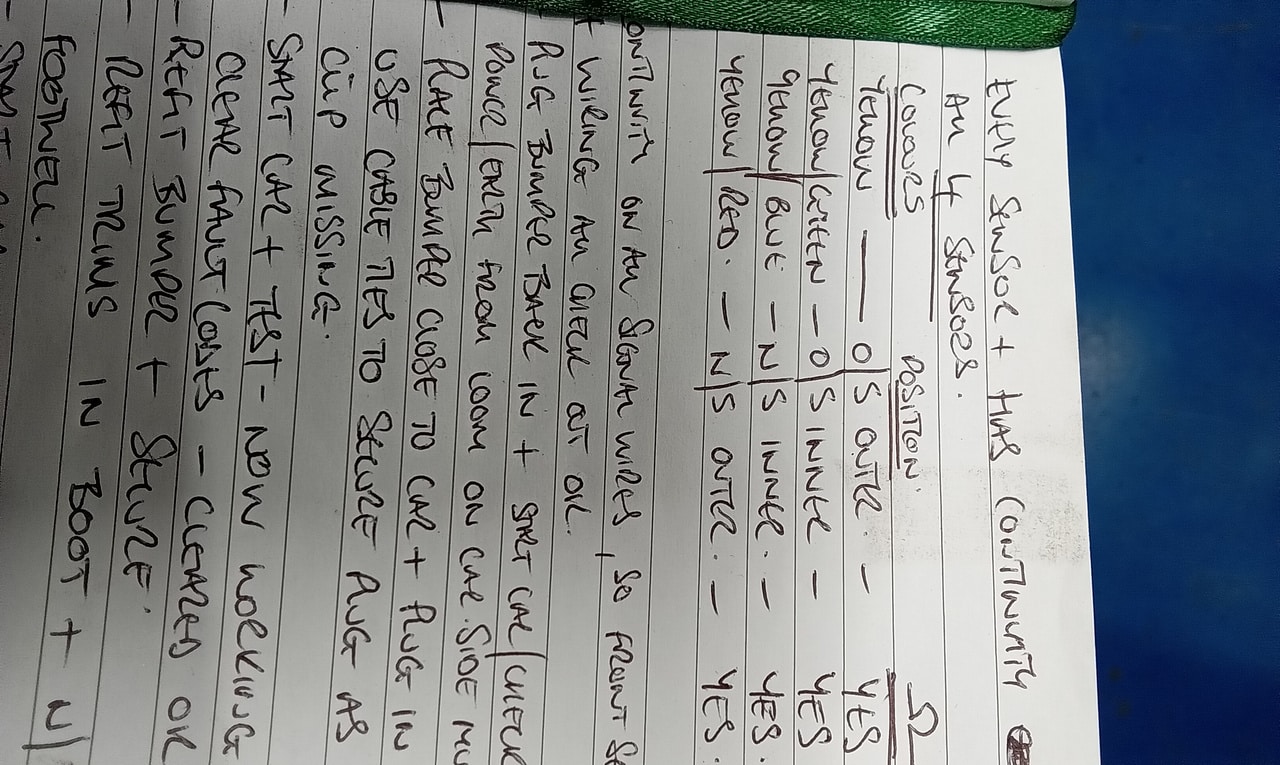 EVERY SENSOR + HAS CONTINUITY
ALL 4 SENSORS.
COLOURS POSITION. Ω
YELLOW — O/S OUTER. — YES
YELLOW/GREEN — O/S INNER — YES
YELLOW/BLUE — N/S INNER. — YES.
YELLOW/RED. — N/S OUTER. — YES.
ONTINUITY ON ALL SIGNAL WIRES, SO FRONT SE
WIRING ALL CHECK OUT OK.
PLUG BUMPER BACK IN + START CAR/CHECK
POWER/EARTH FROM LOOM ON CAR SIDE
- PLACE BUMPER CLOSE TO CAR + PLUG IN
USE CABLE TIES TO SECURE PLUG AS
CLIP MISSING.
- START CAR + TEST - NOW WORKING
CLEAR FAULT CODES - CLEARED OK
- REFIT BUMPER + SECURE.
- REFIT TRIMS IN BOOT + N/
FOOTWELL.
- START